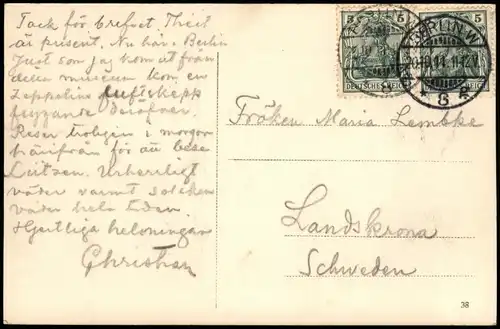 Tack för brefvet Theil
är present. Nu här i Berlin
Just som jag kom ut från
detta museum kom en
Zeppelins luftskepp
flygande
Reser troligen i morgon
härifrån för att bese
Lützen. Urherrligt
väder varmt solsken
hela tiden
Hjertliga helsningar
Christian
Fröken Maria Lembke
Landskrona
Schweden
5 5
DEUTSCHES REICH
REICH
BERLIN.W
20.10.11.11-12V.
* 8 g.
38